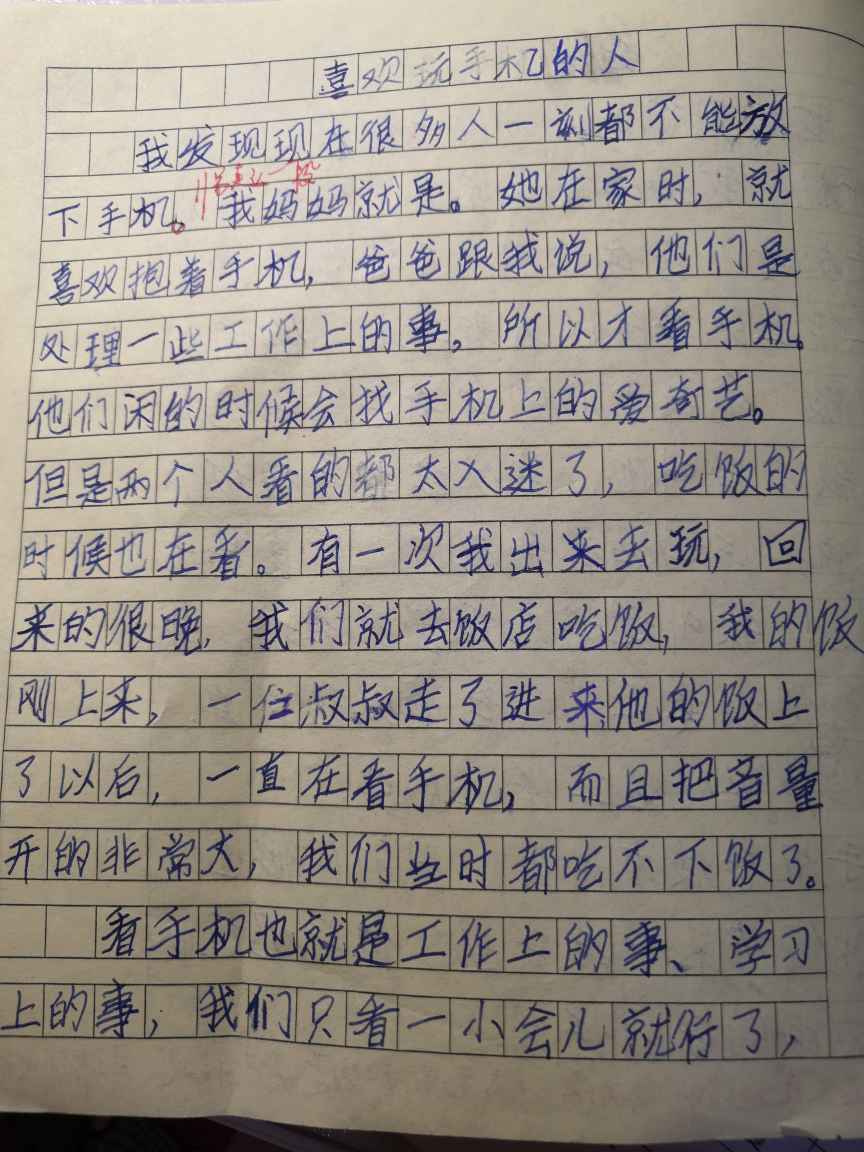 喜欢玩手机的人
我发现现在很多人一刻都不能放
下手机。我妈妈就是。她在家时，就
喜欢抱着手机，爸爸跟我说，他们是
处理一些工作上的事，所以才看手机。
他们闲的时候会找手机上的爱奇艺。
但是两个人看的都太入迷了，吃饭的
时候也在看。有一次我出来去玩，回
来的很晚，我们就去饭店吃饭，我的饭
刚上来，一位叔叔走了进来他的饭上
了以后，一直在看手机，而且把音量
开的非常大，我们当时都吃不下饭了。
看手机也就是工作上的事、学习
上的事，我们只看一小会儿就行了，